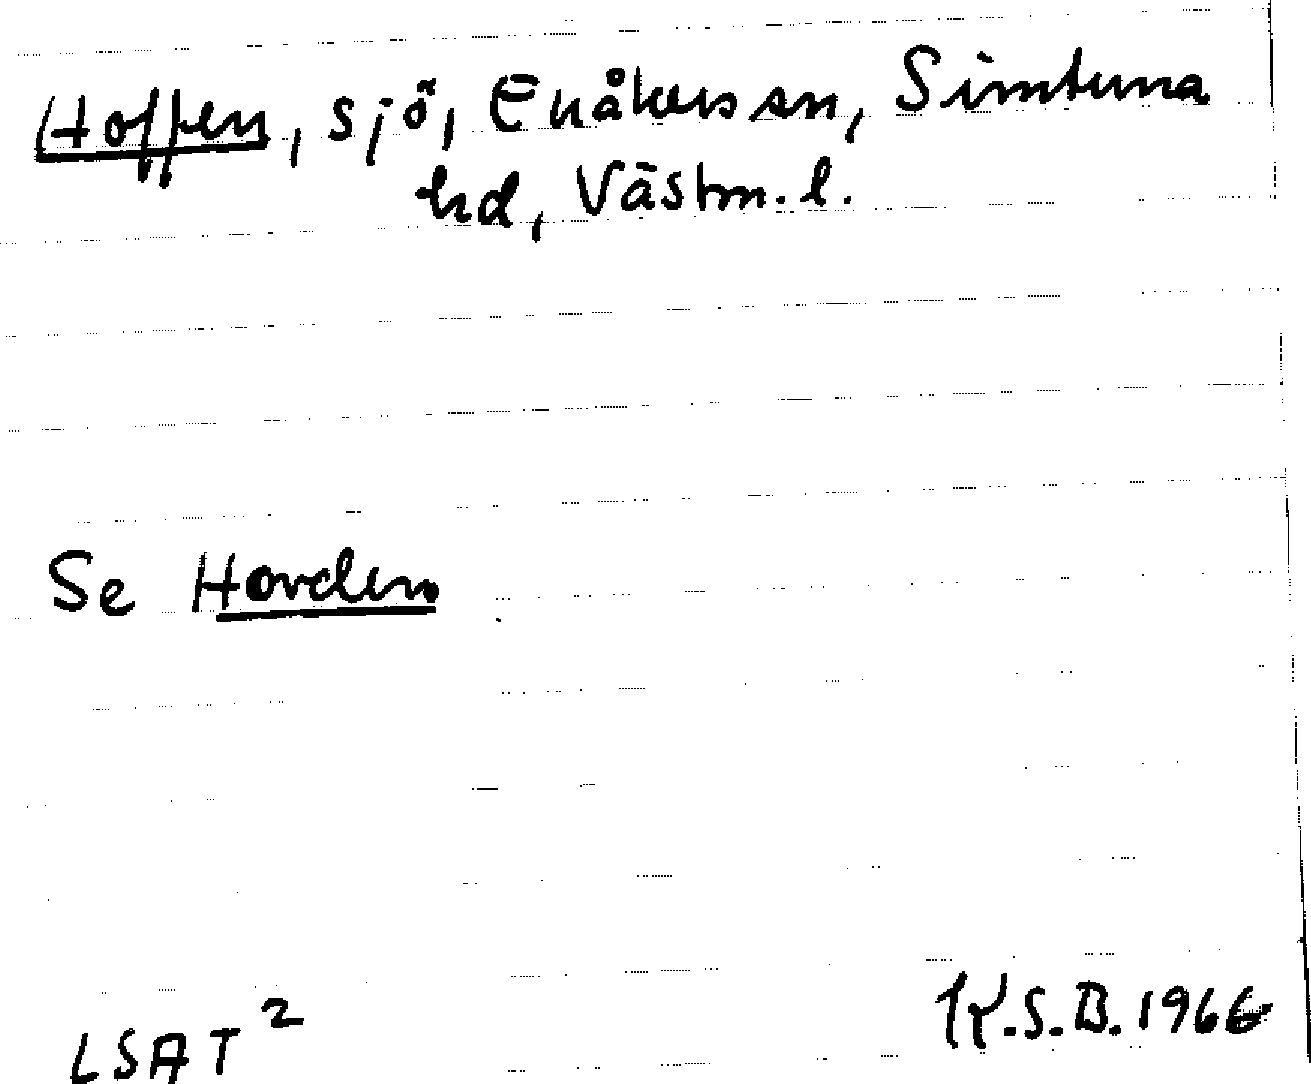 Hoffen, sjö, Enåkers sn, Simtuna
hd, Västm. l.
Se Hovden
LSAT²
K.S.B. 1966